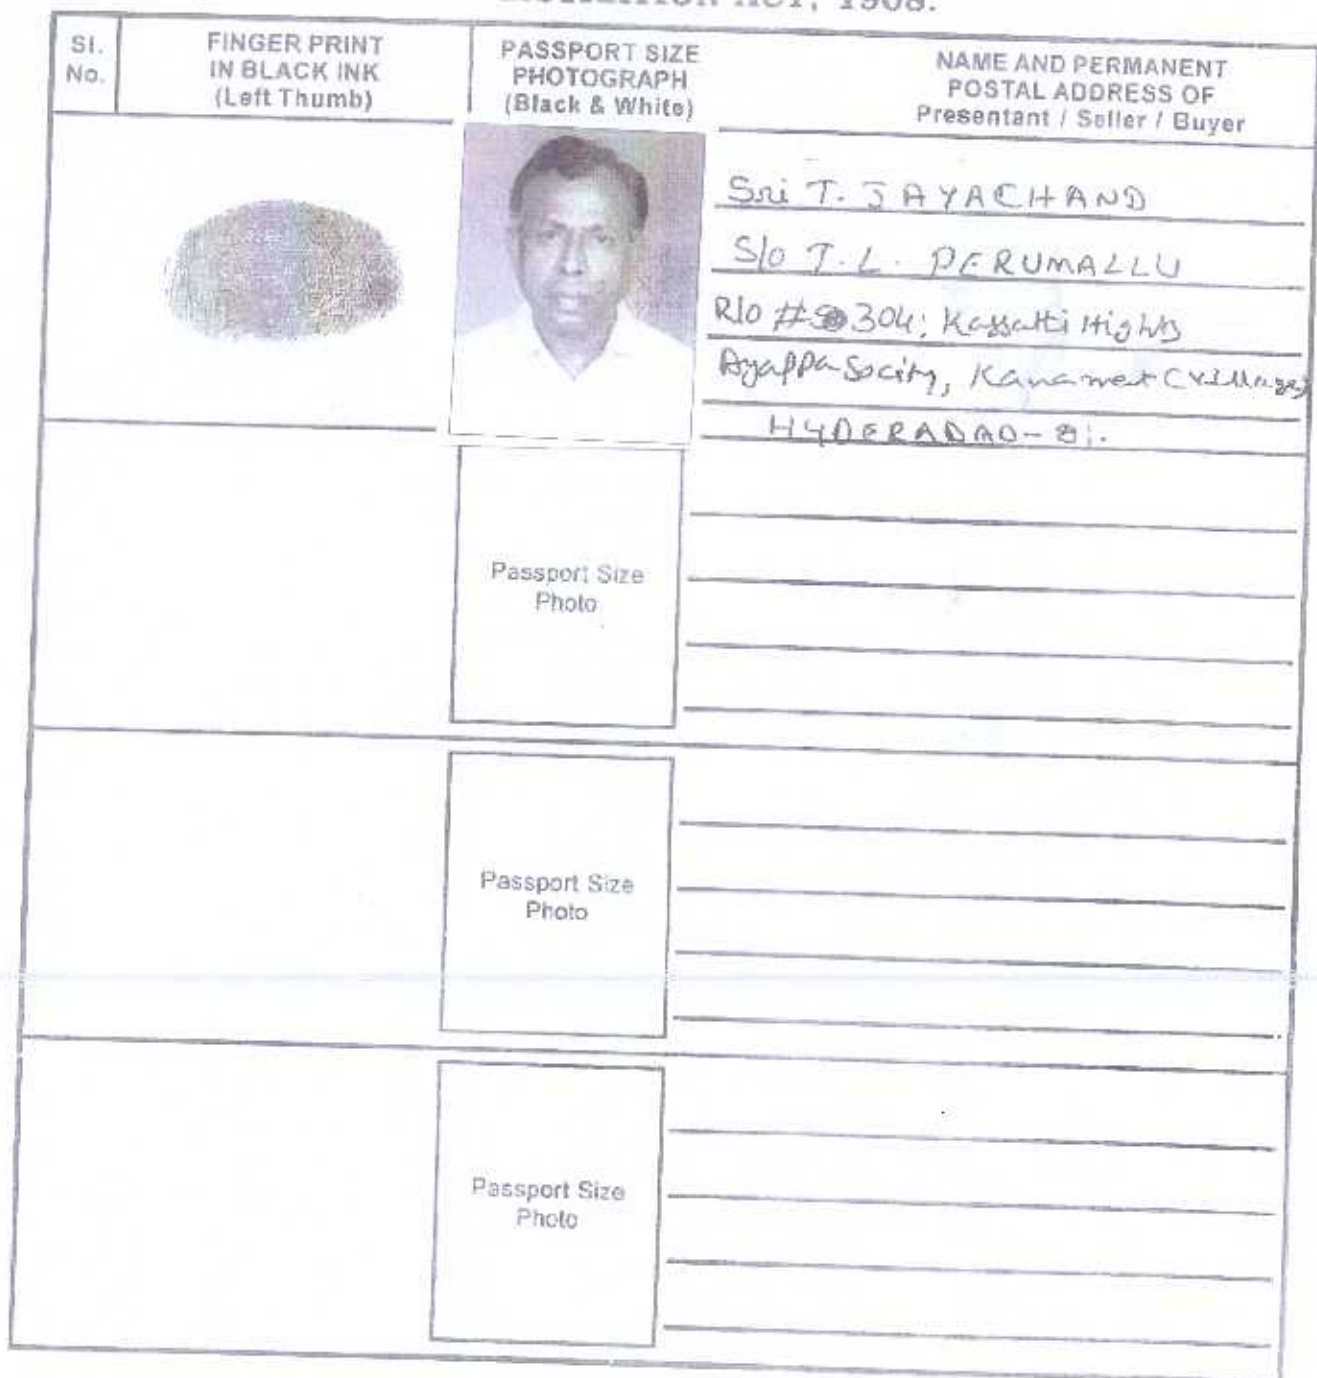 ACT, 1908.
Sl. No.
FINGER PRINT IN BLACK INK (Left Thumb)
PASSPORT SIZE PHOTOGRAPH (Black & White)
NAME AND PERMANENT POSTAL ADDRESS OF Presentant / Seller / Buyer
Sri T. JAYACHAND
S/o T.L. PERUMALLU
R/o # 304; Hights
Ayappa Socity, (Village)
HYDERABAD-81.
Passport Size
Photo
Passport Size
Photo
Passport Size
Photo